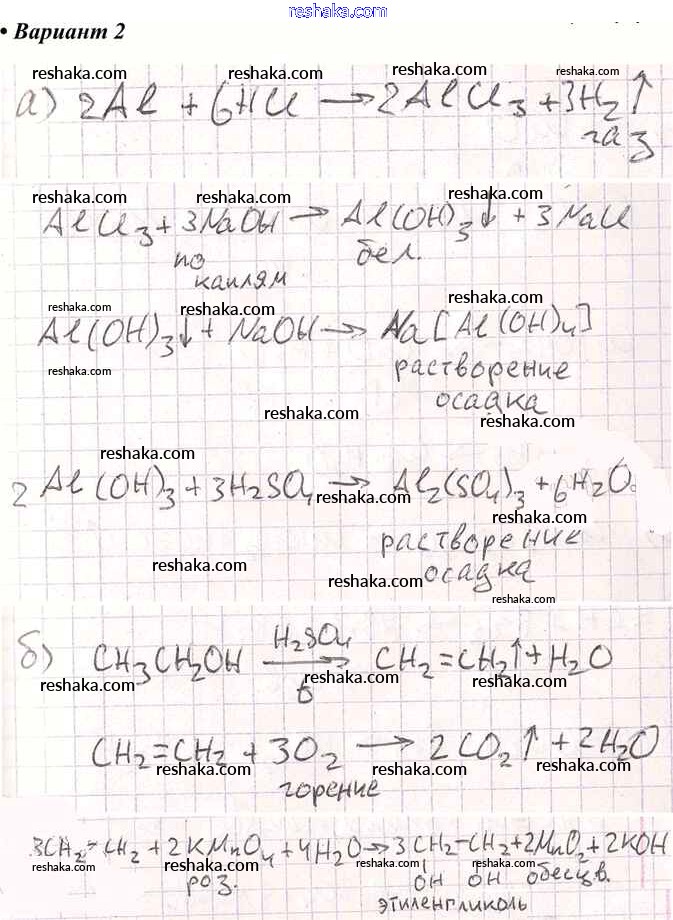 reshaka.com
• Вариант 2
reshaka.com reshaka.com reshaka.com reshaka.com
а) 2Al + 6HCl → 2AlCl₃ + 3H₂↑
reshaka.com reshaka.com газ
reshaka.com reshaka.com reshaka.com
AlCl₃ + 3NaOH → Al(OH)₃↓ + 3NaCl
по каплям бел.
reshaka.com reshaka.com reshaka.com
Al(OH)₃↓ + NaOH → Na[Al(OH)₄]
reshaka.com растворение
осадка
reshaka.com reshaka.com
reshaka.com reshaka.com
2Al(OH)₃ + 3H₂SO₄ → Al₂(SO₄)₃ + 6H₂O
reshaka.com reshaka.com
растворение
осадка
reshaka.com reshaka.com reshaka.com
б) CH₃CH₂OH H₂SO₄ → t CH₂=CH₂↑ + H₂O
reshaka.com reshaka.com reshaka.com
CH₂=CH₂ + 3O₂ → 2CO₂↑ + 2H₂O
reshaka.com горение reshaka.com reshaka.com
reshaka.com reshaka.com reshaka.com
3CH₂=CH₂ + 2KMnO₄ + 4H₂O → 3CH₂-CH₂ + 2MnO₂ + 2KOH
reshaka.com роз. reshaka.com OH OH reshaka.com обесцв.
этиленгликоль
reshaka.com reshaka.com reshaka.com